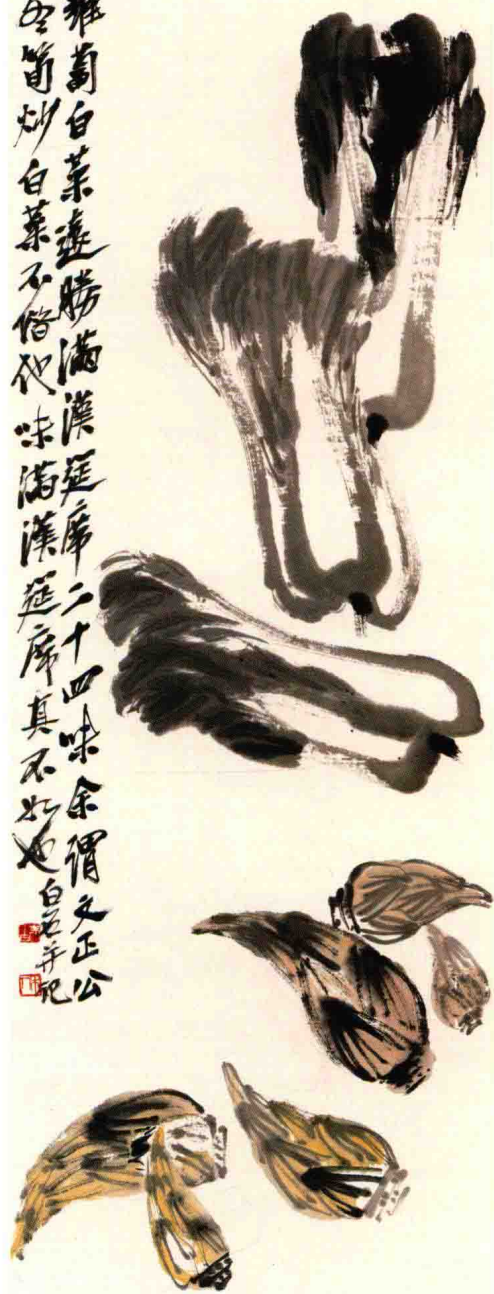 蘿蔔白菜遠勝滿漢筵席二十四味余謂文正公
冬筍炒白菜不借他味滿漢筵席真不如也
白石并記